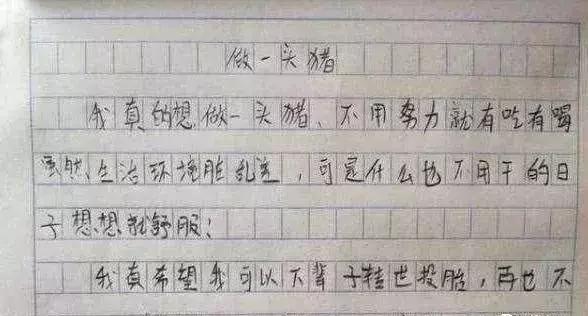 做一头猪
我真的想做一头猪、不用努力就有吃有喝
虽然、生活环境脏乱差，可是什么也不用干的日
子想想就舒服；
我真希望我可以下辈子转世投胎，再也不